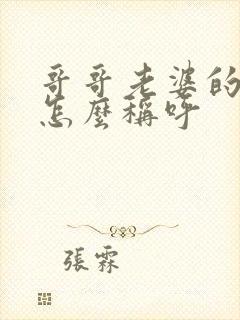 哥哥老婆的
怎麼稱呼
張霖